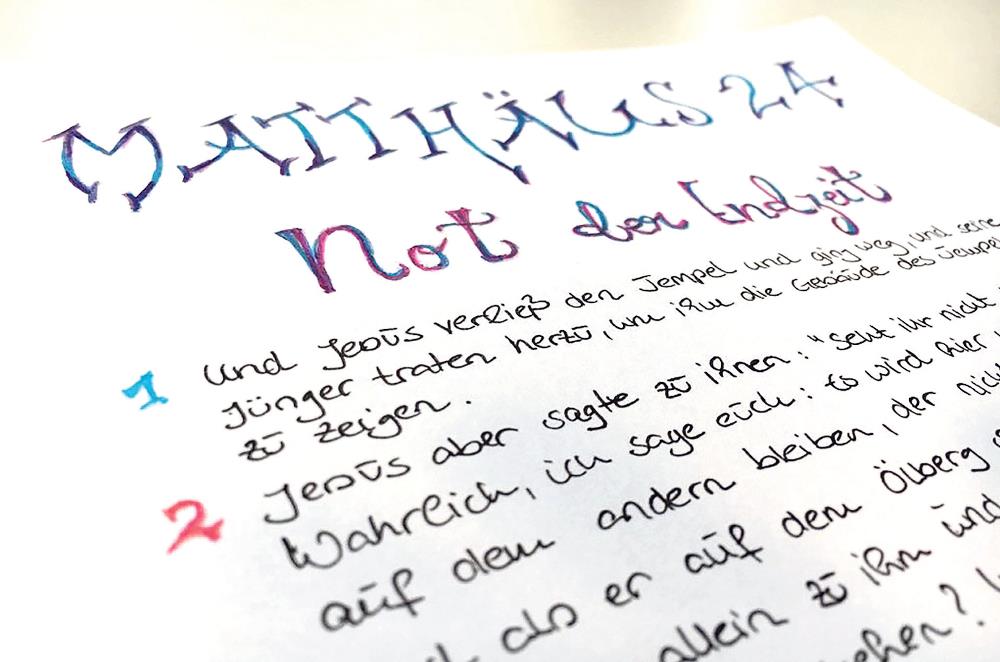 MATTHÄUS 24
Not der Endzeit
1 Und Jesus verließ den Tempel und ging weg, und seine
Jünger traten herzu, um ihm die Gebäude des Tempel
zu zeigen.
2 Jesus aber sagte zu ihnen: "Seht ihr nicht
Wahrlich, ich sage euch: Es wird hier
auf dem andern bleiben, der nich
als er auf dem Ölberg
allein zu ihm und
ehen?